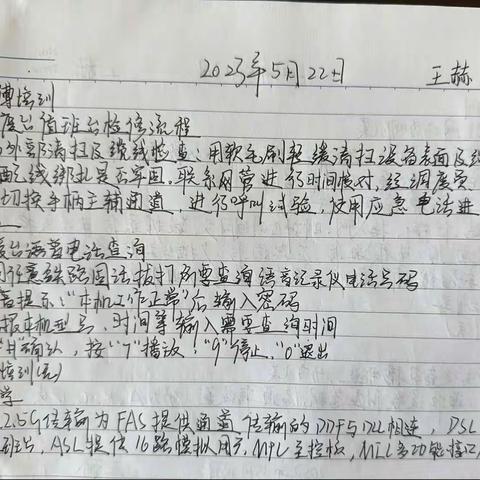 2023年5月22日 王赫
培训
度台值班台检修流程
外部清扫及缆线检查:用软毛刷轻缓清扫设备表面及缆
线绑扎是否牢固,联系网管进行时间核对,经调度员
切换手柄主辅通道,进行呼叫试验,使用应急电话进
台语音电话查询
任意铁路固话拔打所要查询语音记录仪电话号码
提示:"本机工作正常"后输入密码
报本机型号,时间等输入需要查询时间
"确认,按"7"播放,"9"停止,"0"退出
培训(
2.5G传输为FAS提供通道 传输的DDF与DLL相连,DSL
ASL提供16路模拟用户,MPL主控板,MIL多功能接口